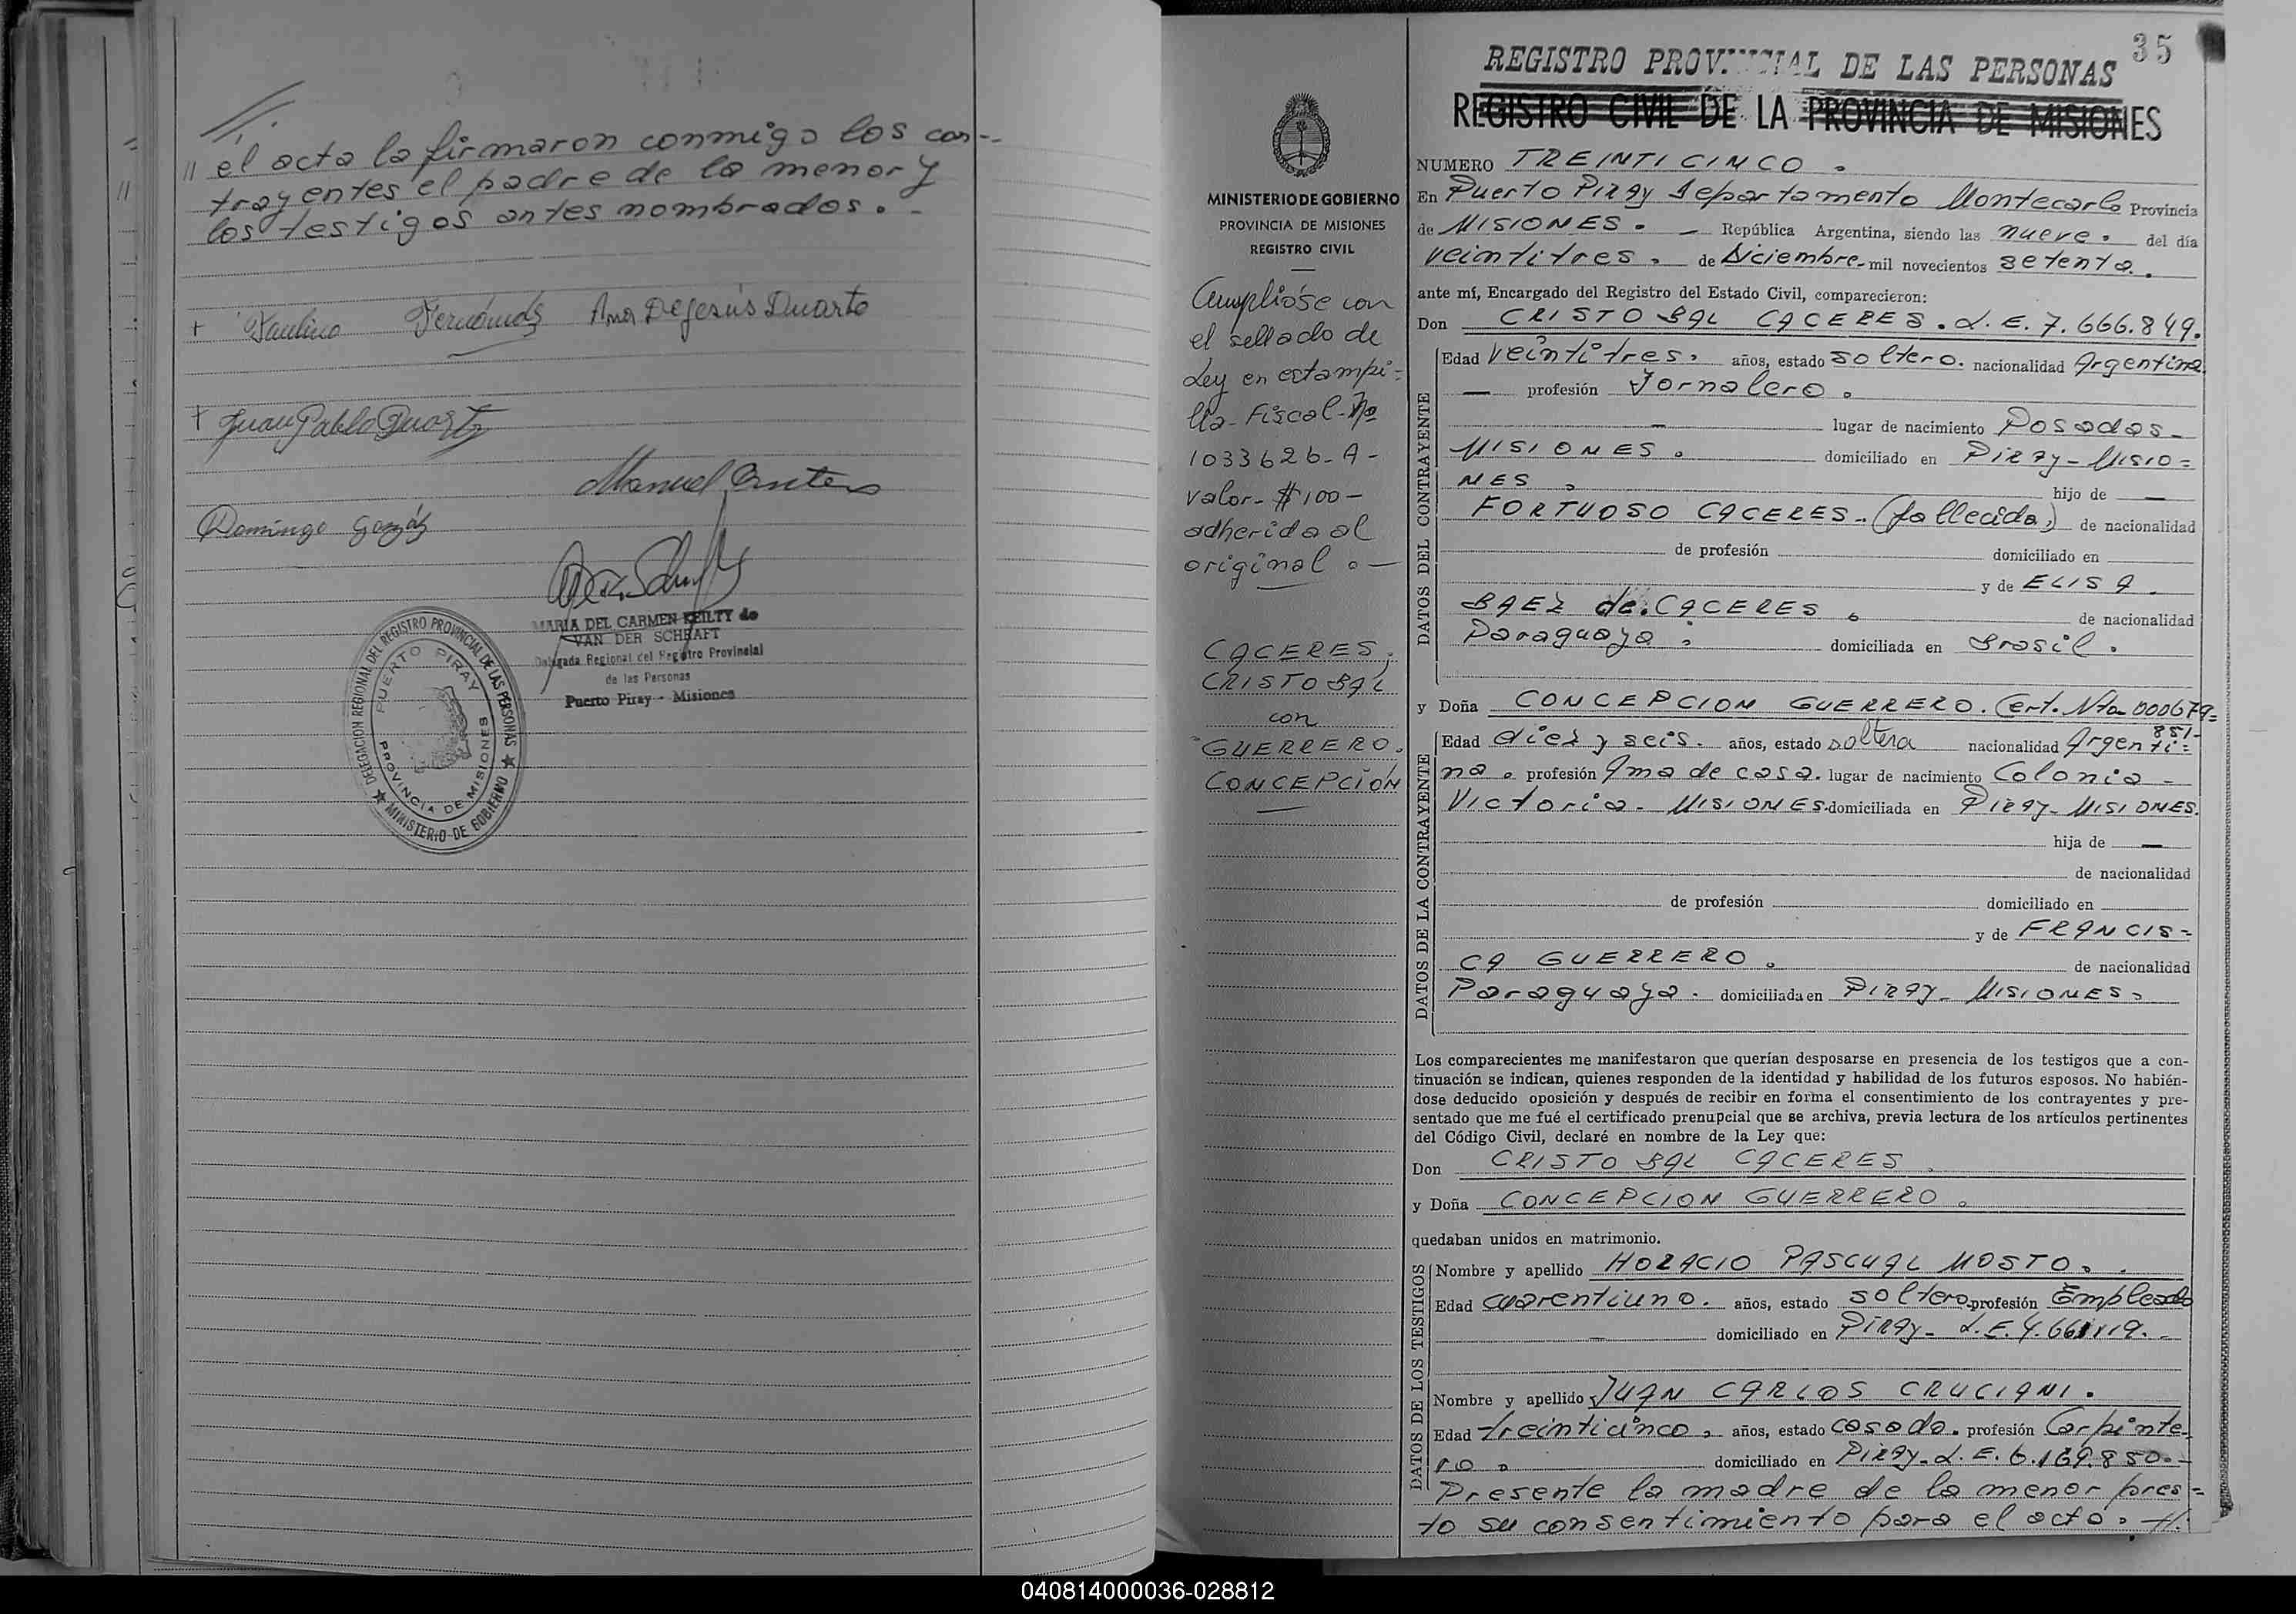 //.
// el acta la firmaron conmigo los con--
trayentes el padre de la menor y
los testigos antes nombrados. -
+ Paulino Fernández Ana De Jesús Duarte
+ Juan Pablo Duarte
Manuel
Domingo
MARIA DEL CARMEN KEILTY de
VAN DER SCHRAFT
Delegada Regional del Registro Provincial
de las Personas
Puerto Piray - Misiones
DELEGACION REGIONAL DEL REGISTRO PROVINCIAL DE LAS PERSONAS
PUERTO PIRAY
PROVINCIA DE MISIONES
★ MINISTERIO DE GOBIERNO ★
MINISTERIO DE GOBIERNO
PROVINCIA DE MISIONES
REGISTRO CIVIL
Cumplióse con
el sellado de
Ley en estampi=
lla-Fiscal-No
1033626-A-
valor-$100-
adherida al
original.-
CACERES,
CRISTOBAL
con
GUERRERO.
CONCEPCION
35
REGISTRO PROVINCIAL DE LAS PERSONAS
REGISTRO CIVIL DE LA PROVINCIA DE MISIONES
NUMERO TREINTICINCO.
En Puerto Piray departamento Montecarlo Provincia
de MISIONES. - República Argentina, siendo las nueve. del día
veintitres. de Diciembre. mil novecientos setenta.
ante mí, Encargado del Registro del Estado Civil, comparecieron:
Don CRISTOBAL CACERES. L.E. 7.666.849.
DATOS DEL CONTRAYENTE
Edad veintitres. años, estado soltero. nacionalidad Argentina.
— profesión Jornalero.
lugar de nacimiento Posadas-
MISIONES. domiciliado en PIRAY-MISIO=
NES. hijo de —
FORTUOSO CACERES.-(fallecido) de nacionalidad
de profesión domiciliado en
y de ELISA.
BAEZ de.CACERES. de nacionalidad
Paraguaya. domiciliada en Brasil.
y Doña CONCEPCION GUERRERO. Cert. Nto 000679=
851-
DATOS DE LA CONTRAYENTE
Edad diez y seis. años, estado soltera nacionalidad Argenti=
na. profesión Ama de casa. lugar de nacimiento Colonia-
Victoria-MISIONES. domiciliada en PIRAY-MISIONES.
hija de —
de nacionalidad
de profesión domiciliado en
y de FRANCIS=
CA GUERRERO. de nacionalidad
Paraguaya. domiciliada en PIRAY-MISIONES.
Los comparecientes me manifestaron que querían desposarse en presencia de los testigos que a con-
tinuación se indican, quienes responden de la identidad y habilidad de los futuros esposos. No habién-
dose deducido oposición y después de recibir en forma el consentimiento de los contrayentes y pre-
sentado que me fué el certificado prenupcial que se archiva, previa lectura de los artículos pertinentes
del Código Civil, declaré en nombre de la Ley que:
Don CRISTOBAL CACERES.
y Doña CONCEPCION GUERRERO.
quedaban unidos en matrimonio.
DATOS DE LOS TESTIGOS
Nombre y apellido HORACIO PASCUAL MOSTO.
Edad cuarentiuno. años, estado soltero. profesión Empleado
domiciliado en PIRAY-L.E.
Nombre y apellido JUAN CARLOS CRUCIANI.
Edad treinticinco. años, estado casado. profesión Carpinte-
ro. domiciliado en PIRAY-L.E. 6.169.850.-
Presente la madre de la menor pres=
to su consentimiento para el acto. -//.
040814000036-028812